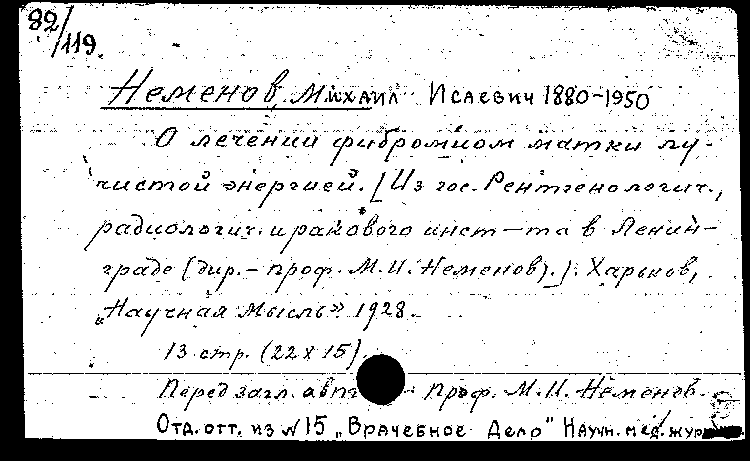 82/119.
Неменов, Михаил Исаевич 1880-1950
О лечении фибромиом матки лу-
чистой энергией. [Из гос. Рентгенологич.,
радиологич. и ракового инст-та в Ленин-
граде (дир. - проф. М.И. Неменов).]. Харьков,
„Научная Мысль" 1928.
13 стр. (22 х 15).
Перед загл. авт. проф. М.И. Неменов.
Отд. отт. из № 15 „Врачебное Дело" Научн. мед.